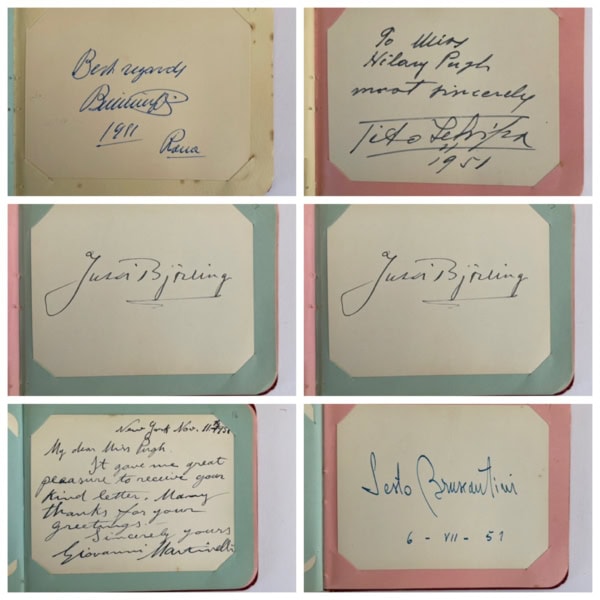 Best regards
1951
Roma
To Miss
Hilary Pugh
most sincerely
Tito Schipa
1951
Jussi Björling
Jussi Björling
New York Nov. 11th/951
My dear Miss Pugh.
It gave me great
pleasure to receive your
kind letter. Many
thanks for your
greetings.
Sincerely yours
Giovanni Martinelli
Sesto Bruscantini
6 - VII - 51